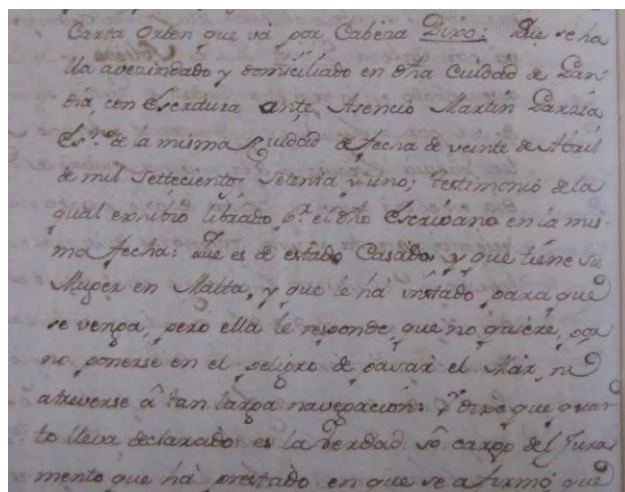 Carta orden que vá por Cabeza Dixo: Que se ha
lla avezindado y domiciliado en dha Ciudad de Gan
día, con Escritura ante Asencio Martin Garzia
Esno. de la misma Ciudad de fecha de veinte de Abril
de mil Settecientos Setenta y uno; testimonio de la
qual exhibió librado pr. el dho Escrivano en la mis
ma fecha: Que es de estado Casado, y que tiene su
Muger en Malta, y que le há instado para que
se venga, pero ella le responde que no quiere, por
no ponerse en el peligro de pasar el Mar, ni
atreverse â tan larga navegacion: Y dixo que quan
to lleva declarado es la verdad sô cargo del Jura
mento que há prestado en que se afirmó que